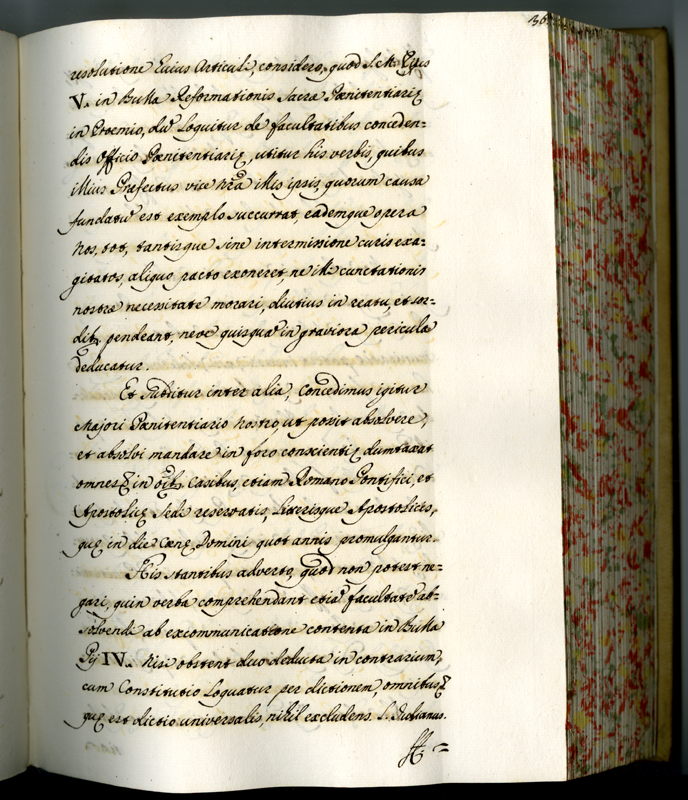 36
resolutione huius Articuli, considero, quod S. M. Pius
V. in Bulla Reformationis Sacræ Pœnitentiarię
in Proemio, dū loquitur de facultatibus conceden=
dis Officio Pœnitentiarię, utitur his verbis, quibus
illius Præfectus vice nr̃a illis ipsis, quorum causa
fundatū est exemplo succurrat, eademque opera
Nos, tot, tantisque sine intermissione curis exa=
gitatos, aliquo pacto exoneret, ne illi cunctationis
nostræ necessitate morari, diutius in reatu, et sor=
dib, pendeant, neve quisquā in graviora pericula
deducatur.
Et subditur inter alia, Concedimus igitur
Majori Pœnitentiario nostro, ut possit absolvere,
et absolvi mandare in foro conscientię dumtaxat
omnes in oĩb, Casibus, etiam Romano Pontifici, et
Apostolicę Sedi reservatis, Litterisque Apostolicis,
quę in die Cœnę Domini quot annis promulgantur.
His stantibus adverto, quod non potest ne=
gari, quin verba comprehendant etiā facultatē ab=
solvendi ab excommunicatione contenta in Bulla
Pij IV. Nisi obstent duo deducta in contrarium,
cum Constitutio loquatur per dictionem, omnibus,
quę est dictio universalis, nihil excludens. L. Julianus.
ff. =